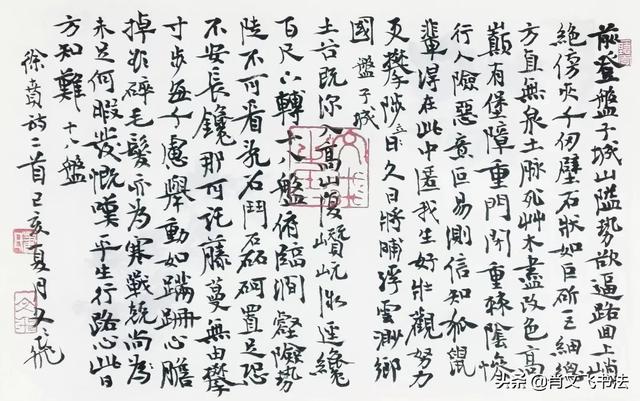 前登盤子城山隘勢欲逼路回上峭
絶傍夾千仞壁石狀如巨斫細總
方直無泉土脉死艸木盡改色高
巔有堡障重門閉重棘陰慘
行人險惡叵易測信知狐鼠
輩得在此中匿我生好壯觀努力
更攀陟久日將晡浮雲渺鄉
國 盤子城
土谷既深入高山復巑岏微逕纔
百尺六轉十八盤俯臨澗壑險勢
陡不可看亂石鬥磊砢置足恐
不安長鑱那可託藤蔓無由攀
寸步每千慮舉動如蹣跚心膽
掉欲碎毛髮亦為寒戰兢尚為
未足何暇發慨嘆平生行路心此日
方知難 十八盤
徐賁詩二首己亥夏月文飛
头条 @肖文飞书法